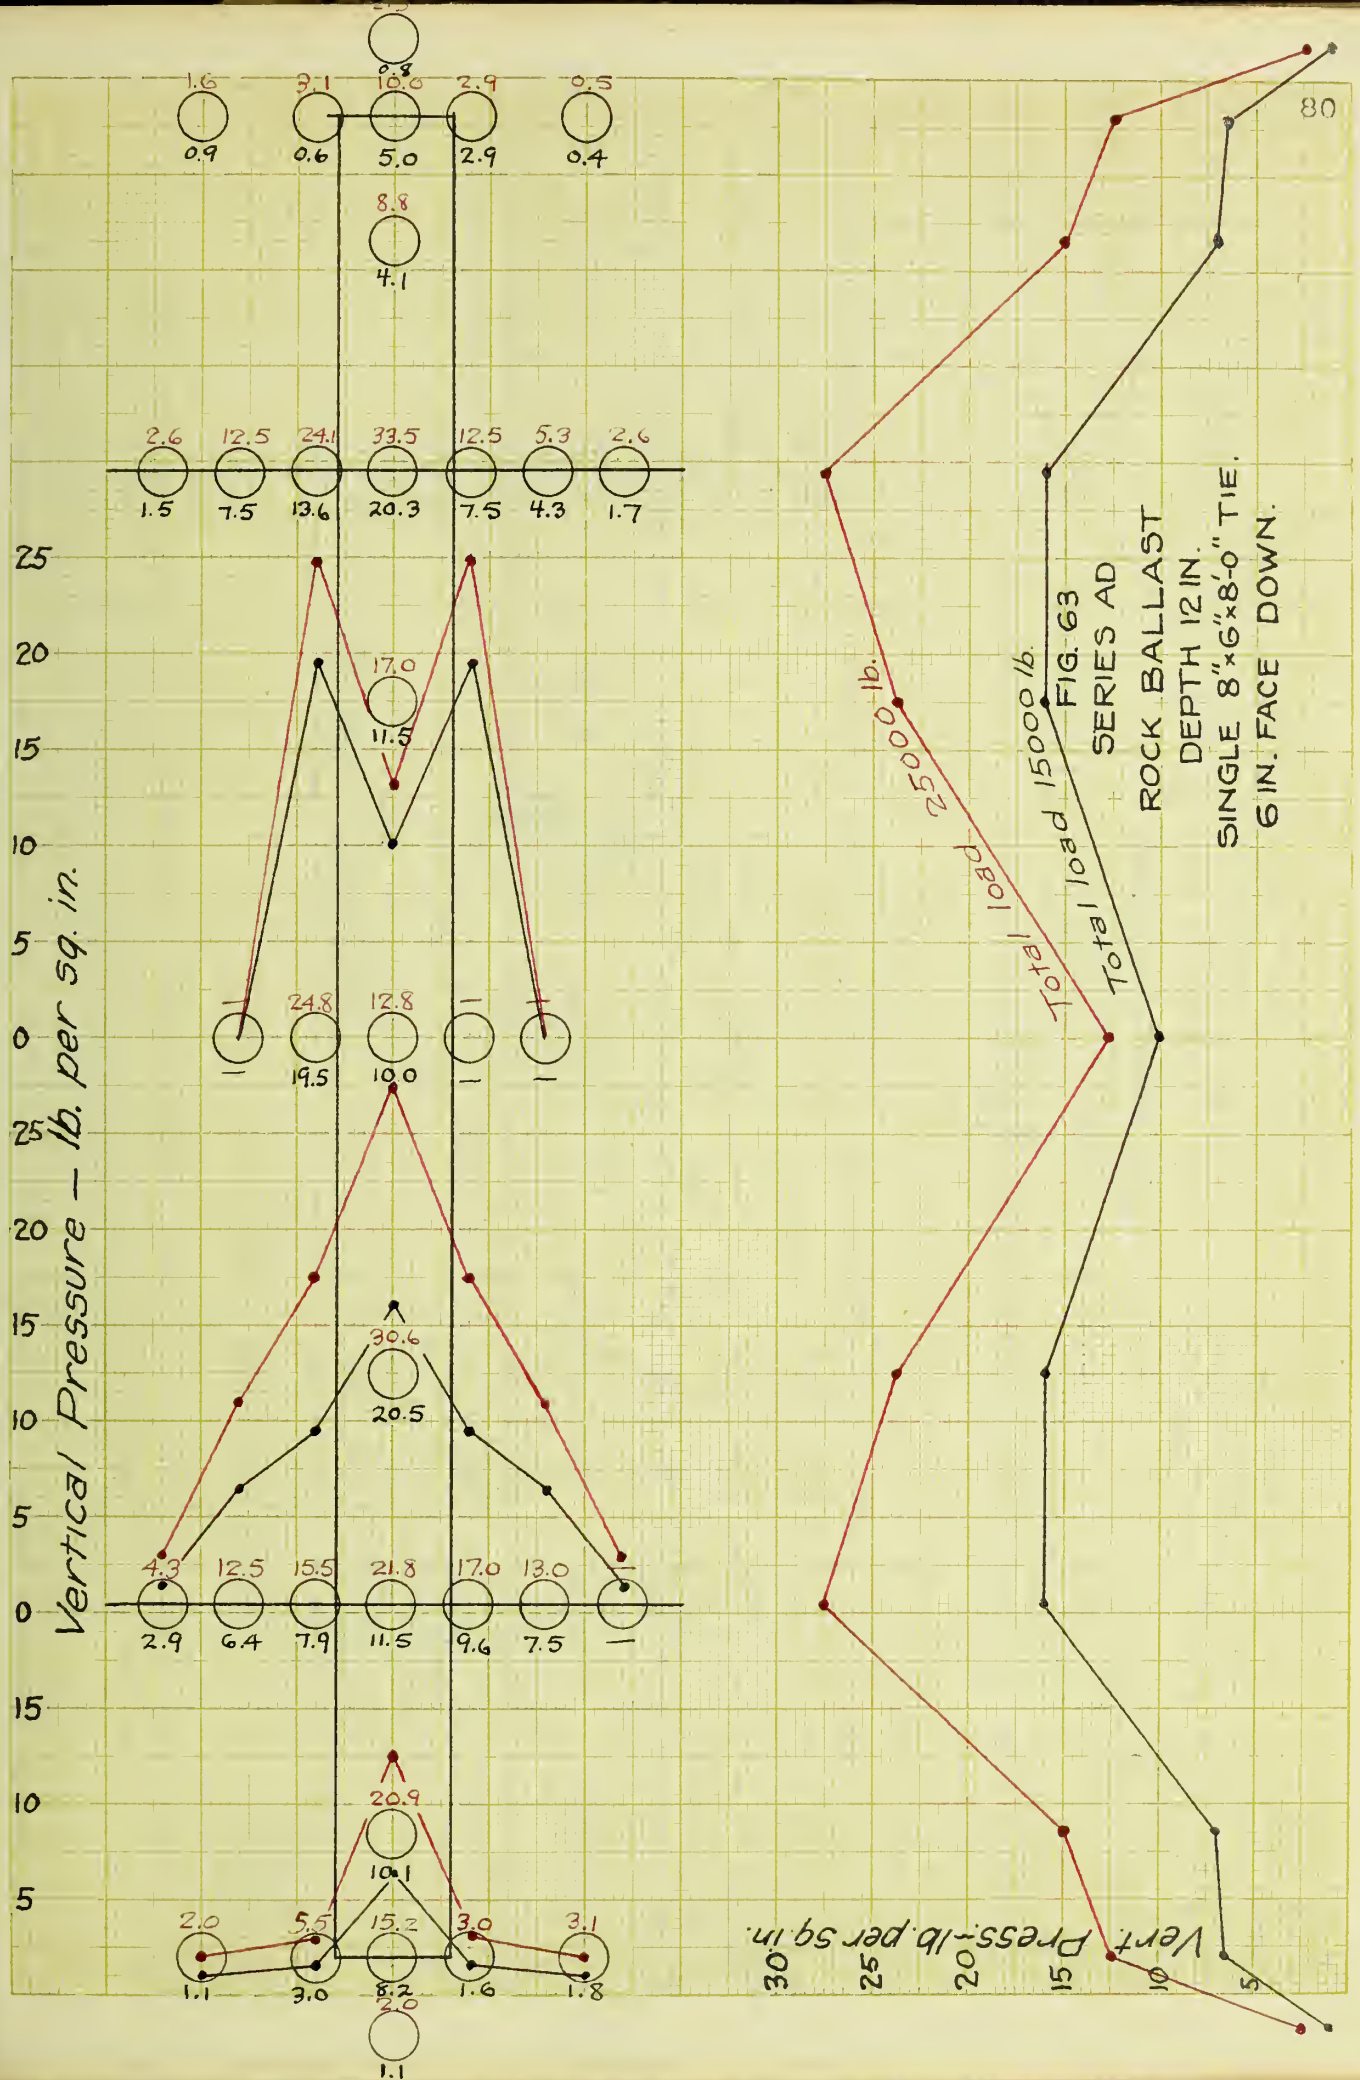 80
0.8
1.6 3.1 10.0 2.9 0.5
0.9 0.6 5.0 2.9 0.4
8.8
4.1
2.6 12.5 24.1 33.5 12.5 5.3 2.6
1.5 7.5 13.6 20.3 7.5 4.3 1.7
25
20
15
10
5
0
17.0
11.5
— 24.8 12.8 — —
— 19.5 10.0 — —
25
20
15
10
5
0
30.6
20.5
4.3 12.5 15.5 21.8 17.0 13.0 —
2.9 6.4 7.9 11.5 9.6 7.5 —
15
10
5
20.9
10.1
2.0 5.5 15.2 3.0 3.1
1.1 3.0 8.2 1.6 1.8
2.0
1.1
Vertical Pressure – lb. per sq. in.
Total load 25000 lb.
Total load 15000 lb.
FIG. 63
SERIES AD
ROCK BALLAST
DEPTH 12 IN.
SINGLE 8"×6"×8'-0" TIE.
6 IN. FACE DOWN.
Vert. Press.-lb. per sq. in.
30
25
20
15
10
5